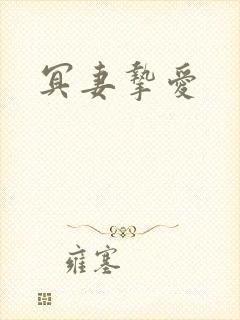 冥妻摯愛
雍塞